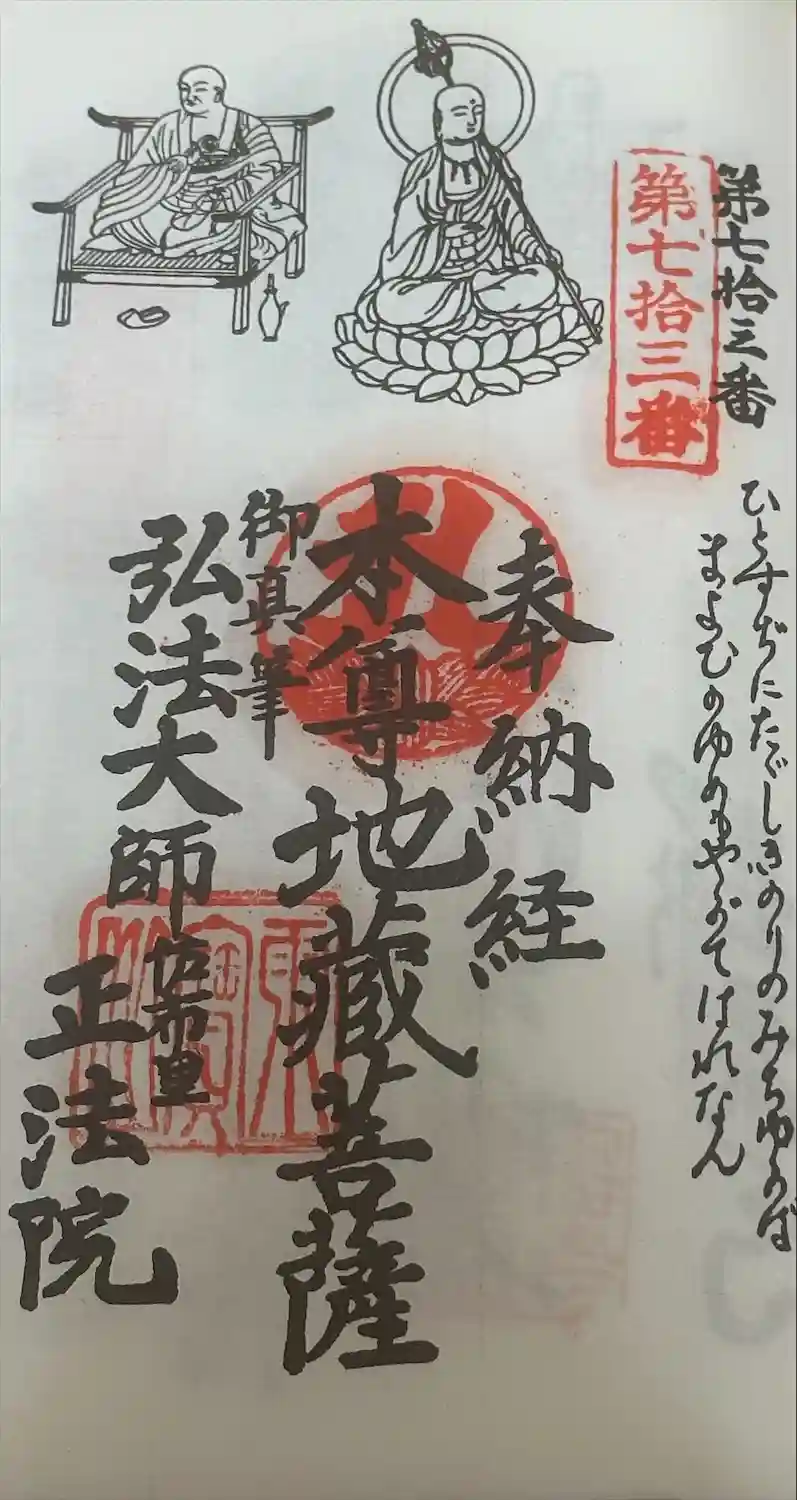 第七拾三番
第七拾三番
ひとすぢにたゞしきのりのみちゆかば
まよひのゆめもやがてはれなん
奉納経
本尊地蔵菩薩
御真筆
弘法大師
佐布里
正法院
雨寶山